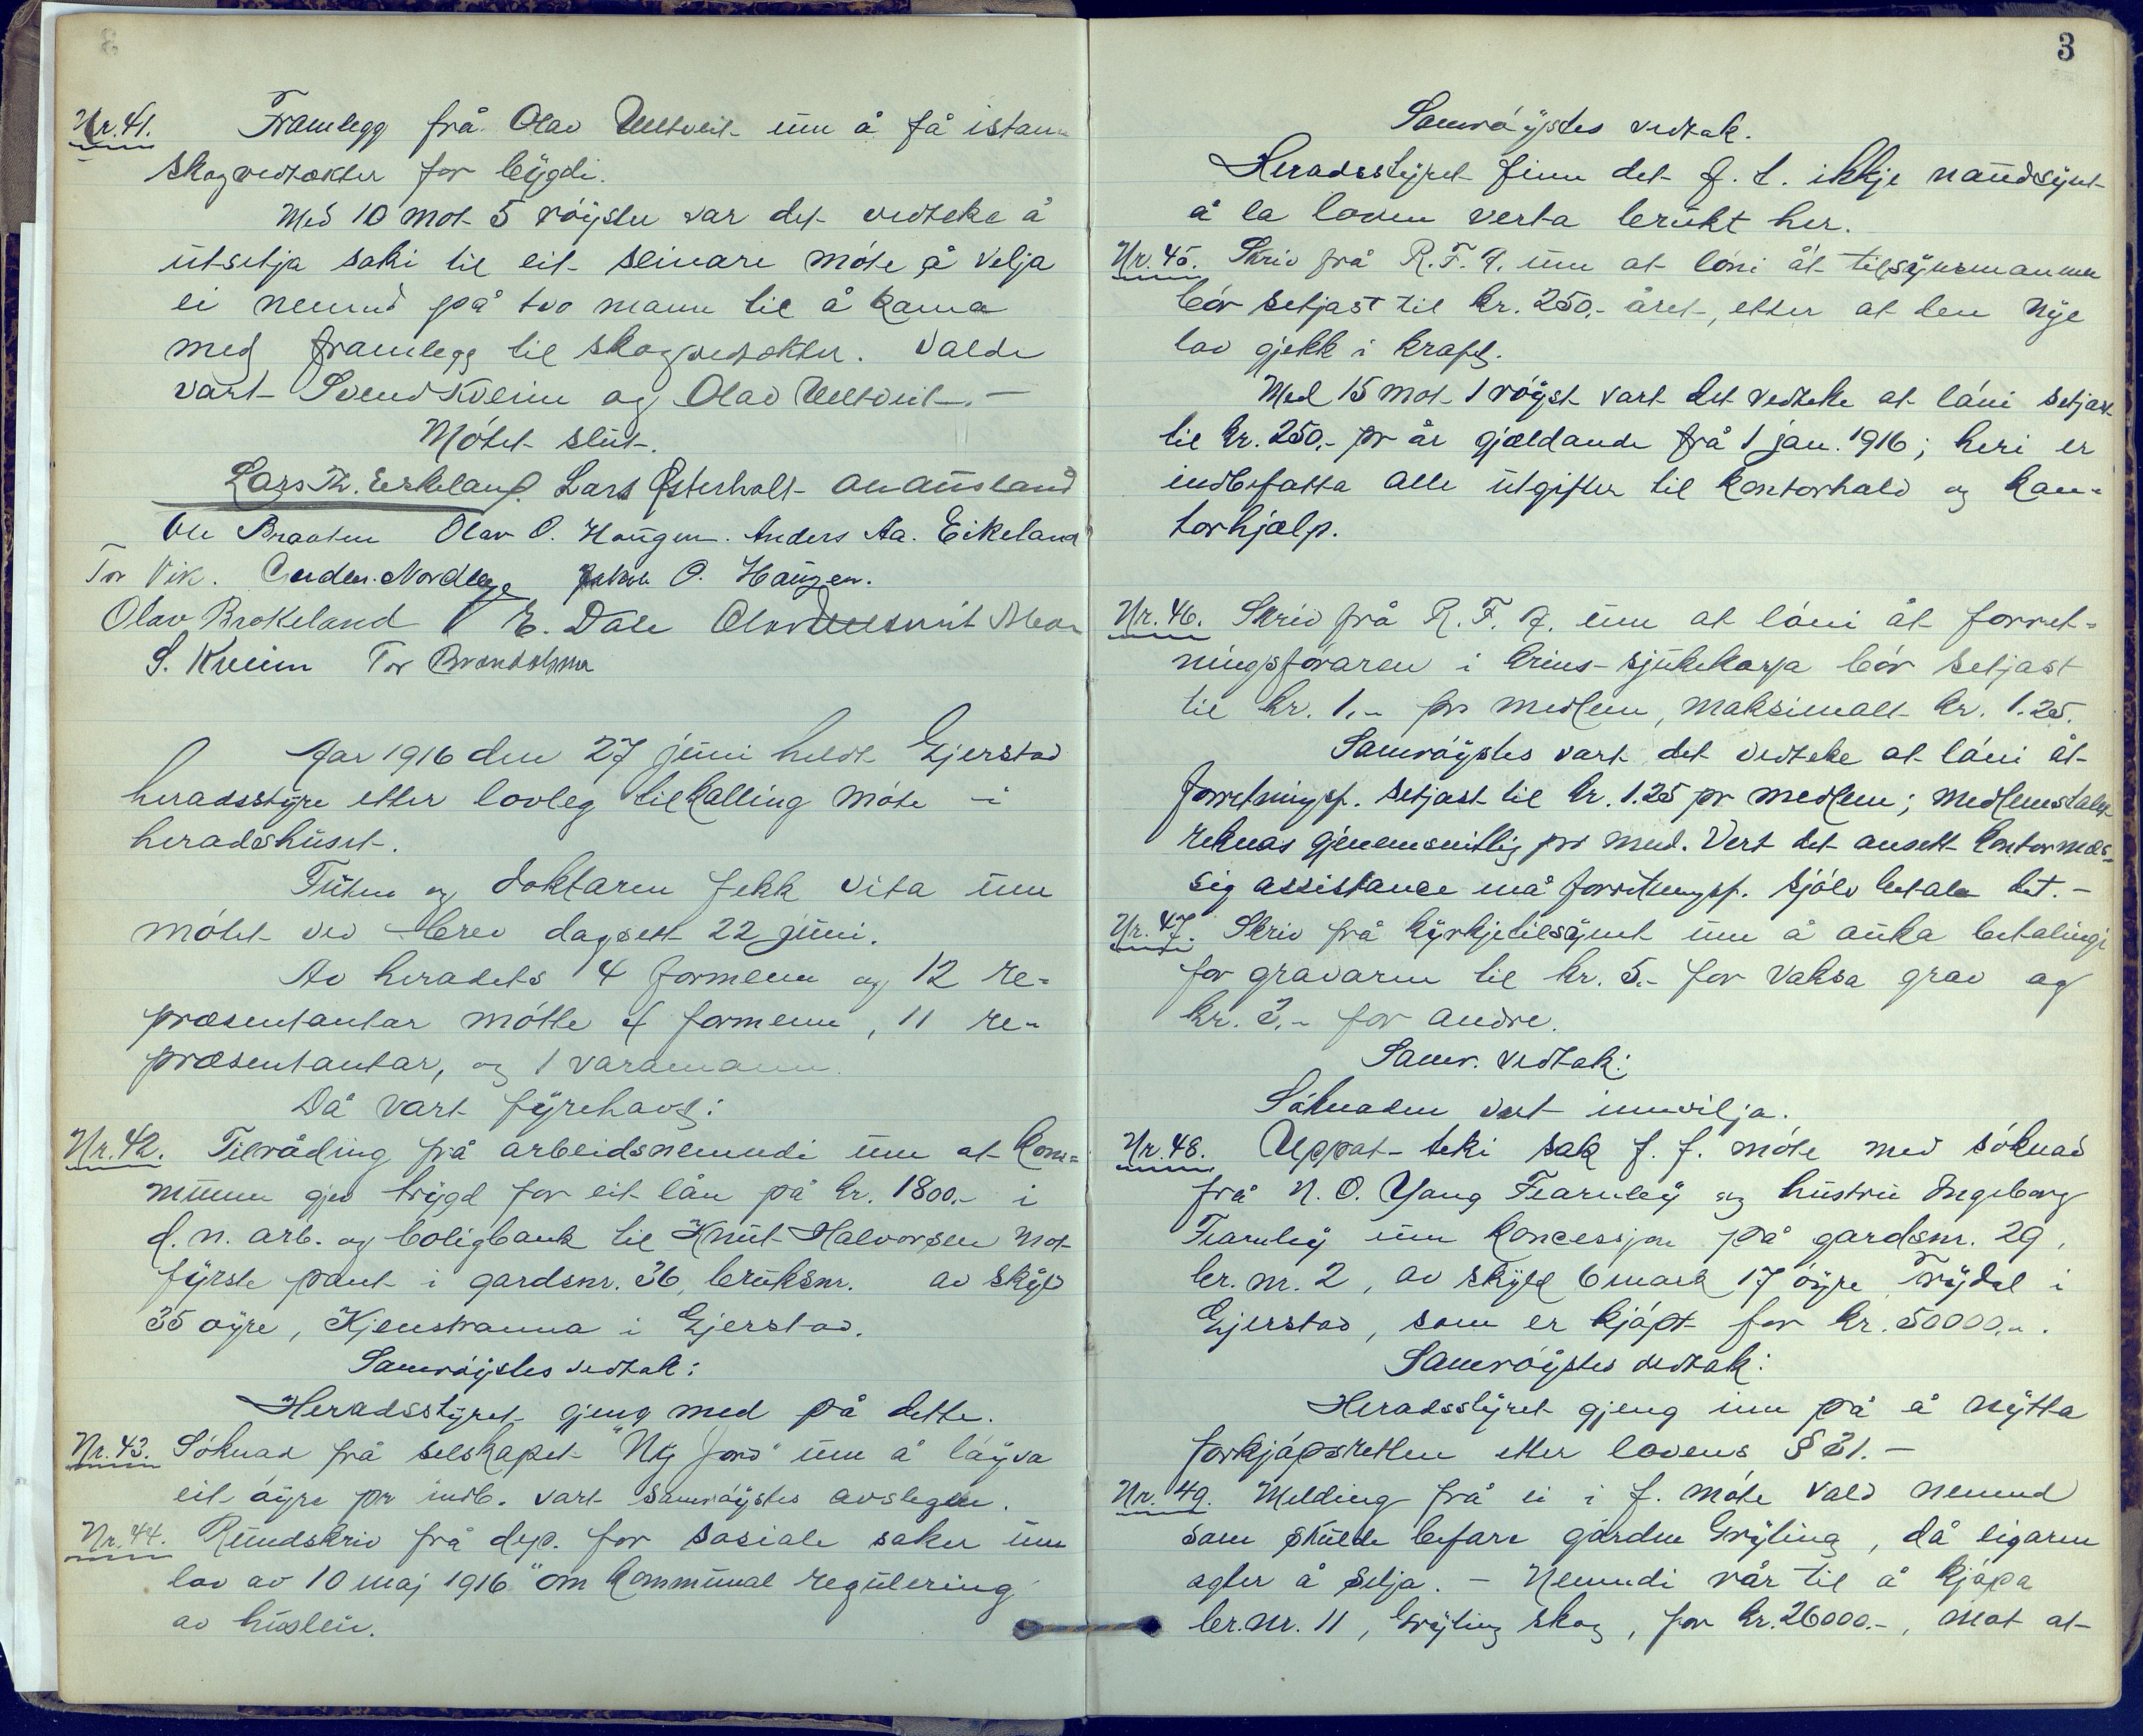 Nr. 41. Framlegg frå Olav Ueltveit um å få istann
skogvedtøkter for bygdi.
Med 10 mot 5 røyster var det vedteke å
utsetja saki til eit seinare møte å velja
ei nemnd på tvo mann til å koma
med framlegg til skogvedtøkter. Valde
vart Svend Kveim og Olav Ueltveit. -
Møtet slut.
Lars Th. Eskeland. Lars Østerholt
Ole Braaten Olav O. Haugen. Anders Aa. Eikeland
Tor Vik. O. Haugen.
Olav Brokeland E. Dale Olav Ueltveit
S. Kveim Tor Brandsholmen
Aar 1916 den 27 juni heldt Gjerstad
heradsstyre etter lovleg tilkalling møte i
heradshuset.
Futen og doktaren fekk vita um
møtet ved brev dagsett 22 juni.
Av heradets 4 formenn og 12 re=
præsentantar møtte 4 formenn, 11 re-
præsentantar, og 1 varamann.
Då vart fyrehavt:
Nr. 42. Tilråding frå arbeidsnemndi um at kom=
munen gjev trygd for eit lån på kr. 1800.- i
d. n. arb. og boligbank til Knut Halvorsen mot
fyrste pant i gardsnr. 36, bruksnr. av skyld
35 øyre, Kjenstranna i Gjerstad.
Samrøystes vedtak:
Heradsstyret gjeng med på dette.
Nr. 43. Søknad frå selskapet "Ny Jord" um å løyva
eit øyre pr indb. vart samrøystes avslegen.
Nr. 44. Rundskriv frå dep. for sosiale saker um
lov av 10 maj 1916 "om kommunal regulering
av husleie.
3
Samrøystes vedtak.
Heradsstyret finn det f. t. ikkje naudsynt
å la loven verta brukt her.
Nr. 45. Skriv frå R. F. A. um at løni åt tilsynsmannen
bør setjast til kr. 250.- året, etter at den nye
lov gjekk i kraft.
Med 15 mot 1 røyst vart det vedteke at løni setjast
til kr. 250.- pr år gjældande frå 1 jan. 1916; heri er
indbefatta alle utgifter til kontorhald og kon=
torhjælp.
Nr. 46. Skriv frå R. F. A. um at løni åt forret=
ningsføraren i krins-sjukekassa bør setjast
til kr. 1.- pr medlem, maksimalt kr. 1.25.
Samrøystes vart det vedteke at løni åt
forretningsf. setjast til kr. 1.25 pr medlem; medlemstalet
reknas gjenemsnitlig pr mnd. Vert det ansett kontormæs=
sig assistance må forretningsf. sjølv betale det. -
Nr. 47. Skriv frå kyrkjetilsynet um å auka betalingi
for gravaren til kr. 5.- for vaksa grav og
kr. 3.- for andre.
Samr. vedtak:
Søknaden vart innvilja.
Nr. 48. Uppat-teki sak f. f. møte med søknad
frå N. O. Yang Fearnley og hustru Ingeborg
Fearnley um koncessjon på gardsnr. 29,
br. nr. 2, av skyld 6 mark 17 øyre, Trydal i
Gjerstad, som er kjøpt for kr. 50000.-.
Samrøystes vedtak:
Heradsstyret gjeng inn på å nytta
forkjøpsretten etter lovens § 21. -
Nr. 49. Melding frå ei i f. møte vald nemnd
som skulde befare garden Gryting, då eigaren
agter å selja. - Nemndi rår til å kjøpa
br. nr. 11, Gryting skog, for kr. 26000.-, mot at